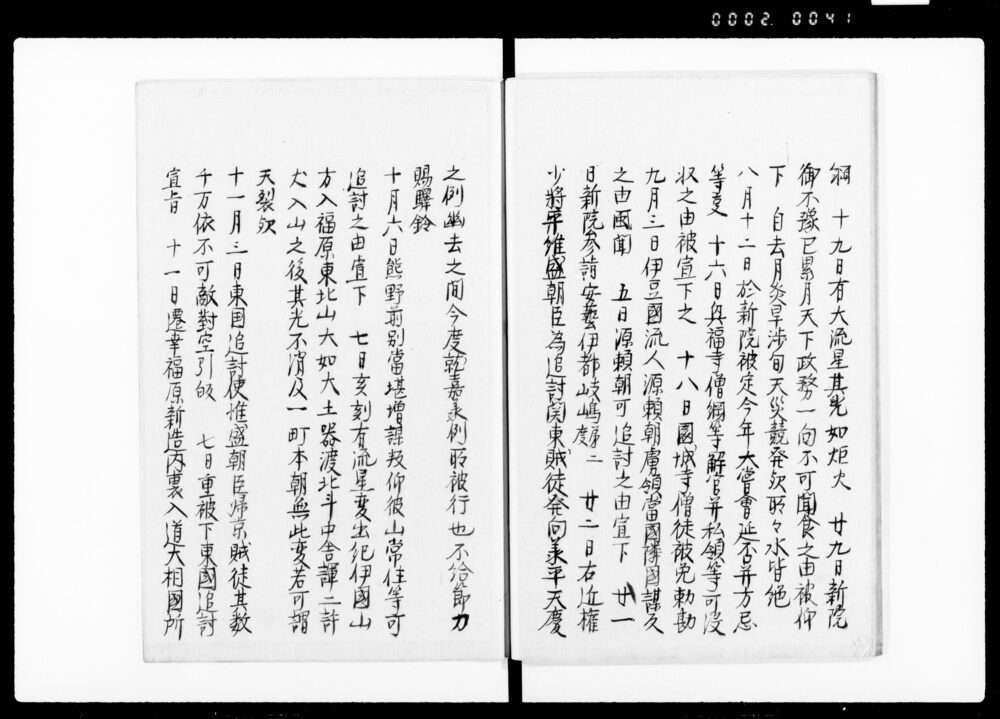 0002.0041
綱　十九日有大流星其光如炬火　廿九日新院
御不豫已累月天下政務一向不可聞食之由被仰
下　自去月炎旱渉旬天災競発欤所々水皆絶
八月十二日於新院被定今年大嘗會延否并方忌
等事　十六日興福寺僧綱等解官并私領等可没
收之由被宣下之　十八日園城寺僧徒被免勅勘
九月三日伊豆國流人源賴朝虜領當國隣國謀父
之由風聞　五日源賴朝可追討之由宣下　廿一
日新院参詣安藝伊都岐嶋第二度　廿二日右近権
少将平維盛朝臣為追討関東賊徒発向承平天慶
之例幽去之間今度就嘉承例所被行也不給節刀
賜驛鈴
十月六日熊野前別當堪増謀叛仰彼山常住等可
追討之由宣下　七日亥刻有流星変出紀伊國山
方入福原東北山大如大土器渡北斗中舎譚二許
犬入山之後其光不消及一町本朝無此変若可謂
天裂欤
十一月三日東国追討使惟盛朝臣帰京賊徒其数
千万依不可敵對空引皈　七日重被下東國追討
宣旨　十一日遷幸福原新造内裏入道大相國所